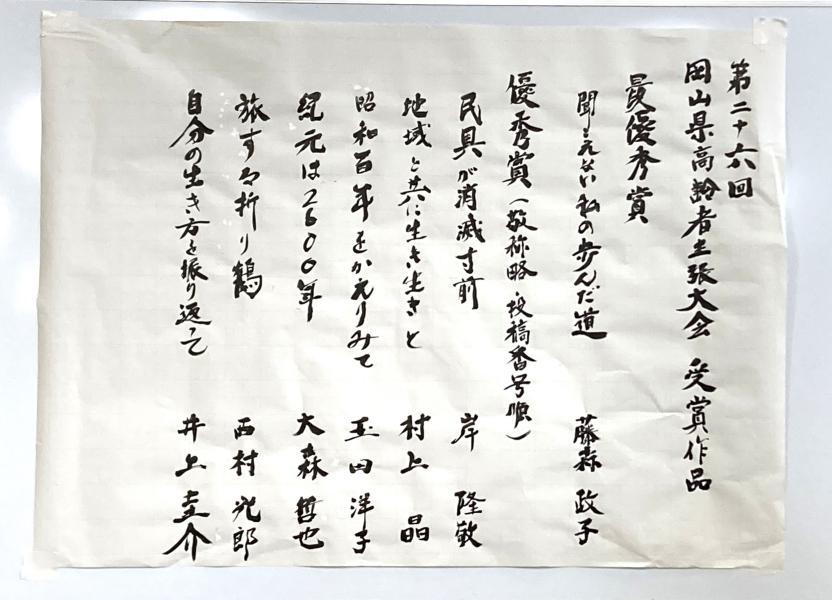 第二十六回
岡山県高齢者主張大会 受賞作品
最優秀賞
聞こえない私の歩んだ道 藤森 政子
優秀賞(敬称略・投稿番号順)
民具が消滅寸前 岸 隆敏
地域と共に生き生きと 村上 晶
昭和百年をかえりみて 玉田 洋子
紀元は2600年 大森 哲也
旅する折り鶴 西村 光郎
自分の生き方を振り返って 井上 圭介